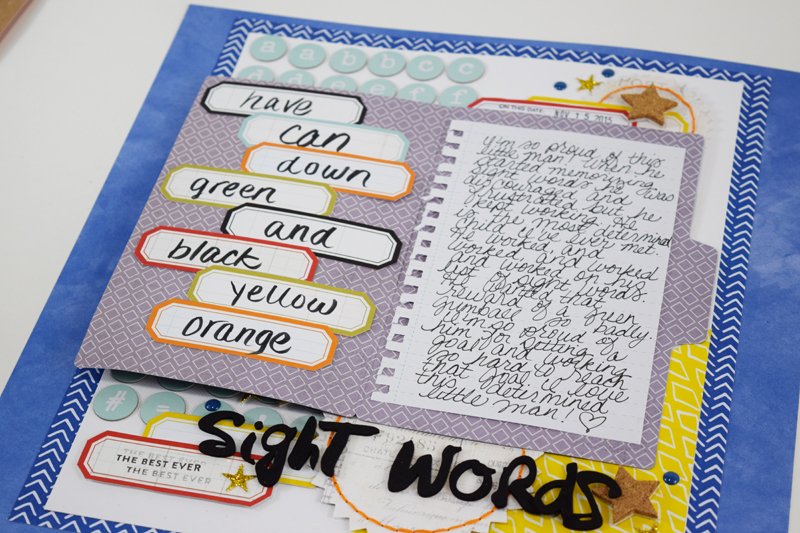 a a b b c c
d d e f f
ON THIS DATE
NOV 1 5 2015
have
can
down
green
and
black
yellow
orange
I'm so proud of this
little man! When he
started memorizing
sight words he was
discouraged and
frustrated but he
kept working. He
is the most determined
child I've ever met.
He worked and
worked and worked
and worked on his
list of sight words.
He wanted that
reward of a green
gumball so badly.
I'm so proud of
him for setting a
goal and working
so hard to reach
that goal. I love
this determined
little man!
#
THE BEST EVER
THE BEST EVER
THE BEST EVER
Sight WORds